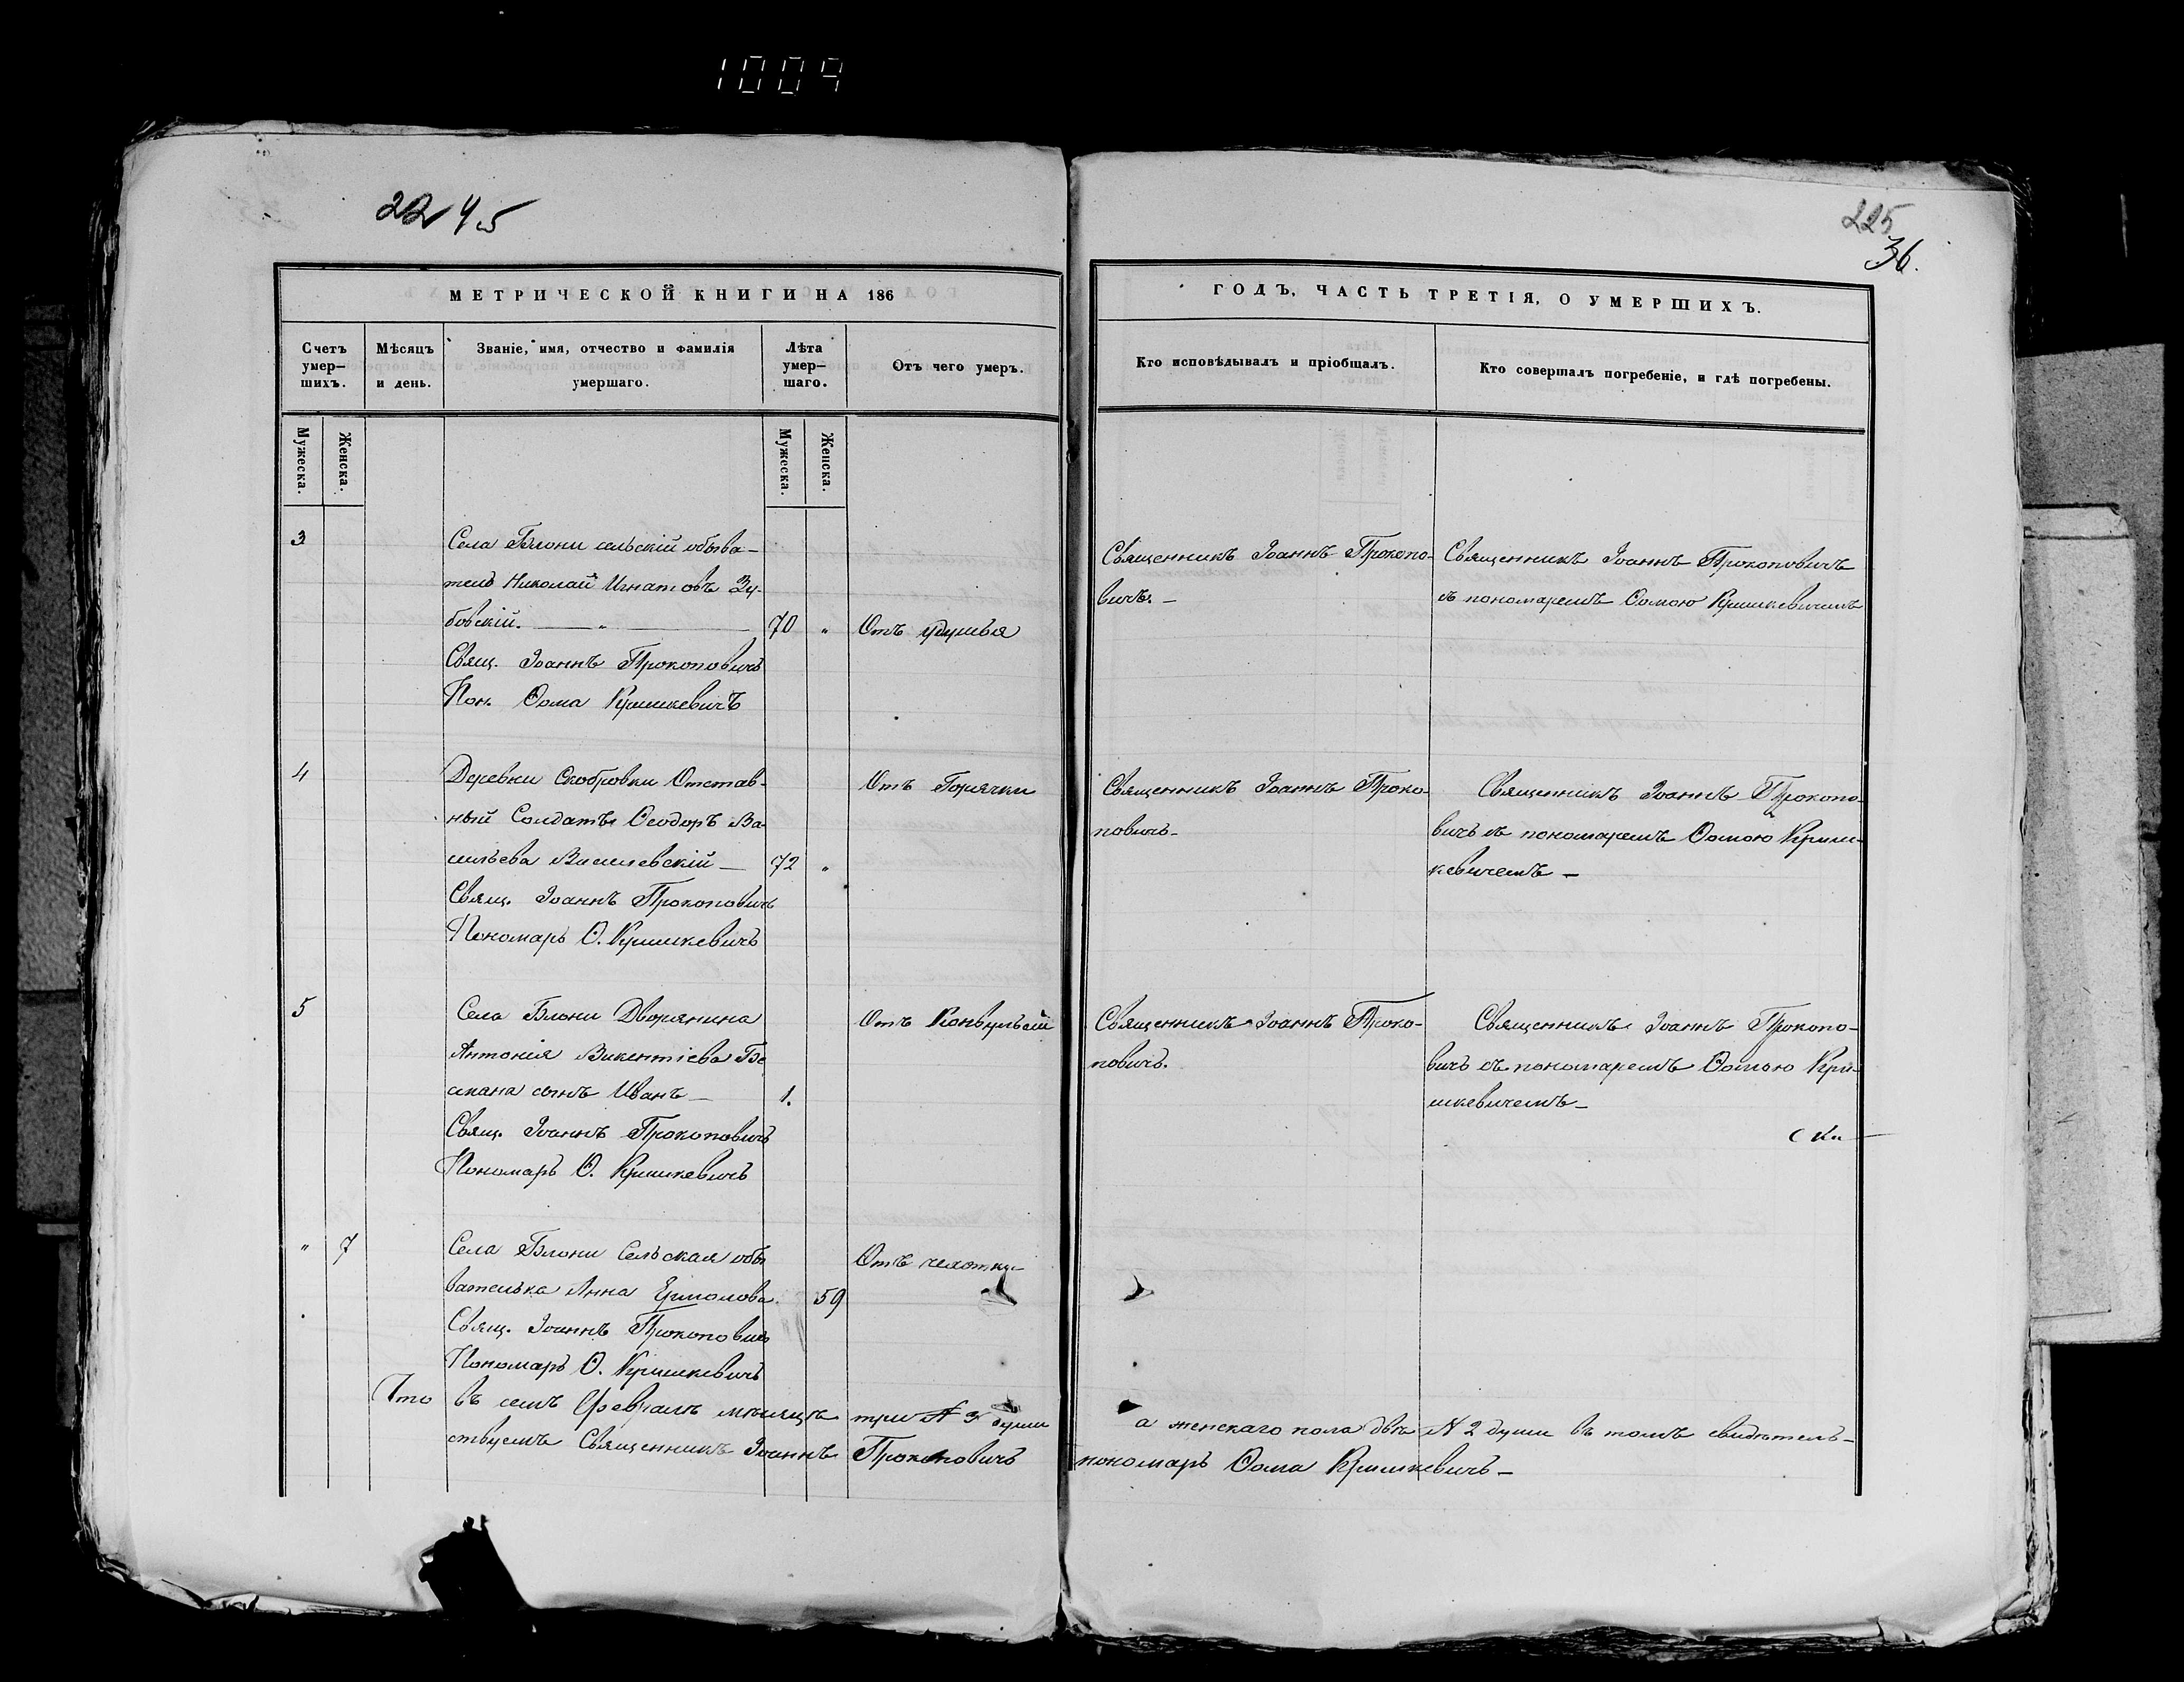 1009
22 45
225
36.
МЕТРИЧЕСКОЙ КНИГИ НА 186
ГОДЪ, ЧАСТЬ ТРЕТІЯ, О УМЕРШИХЪ.
Счетъ умер-шихъ.
Мѣсяцъ и день.
Званіе, имя, отчество и фамилія умершаго.
Лѣта умер-шаго.
Отъ чего умеръ.
Кто исповѣдывалъ и пріобщалъ.
Кто совершалъ погребеніе, и гдѣ погребены.
Мужеска.
Женска.
Мужеска.
Женска.
3
Села Блони сельскій обыва-
тель Николай Игнатовъ Зу-
бовскій. — „ —
70 „ Отъ удушья
Свящ. Іоаннъ Прокоповичъ
Пон. Ѳома Кришкевичъ
Священникъ Іоаннъ Прокопо-
вичъ. –
Священникъ Іоаннъ Прокоповичъ
съ пономаремъ Ѳомою Кришкевичемъ
4
Деревни Скобровки Отстав-
ный Солдатъ Ѳеодоръ Ва-
сильева Василевскій —
72 „
Отъ Горячки
Свящ. Іоаннъ Прокоповичъ
Пономарь Ѳ. Кришкевичъ
Священникъ Іоаннъ Проко-
повичъ –
Священникъ Іоаннъ Прокопо-
вичъ съ пономаремъ Ѳомою Криш-
кевичемъ –
5
Села Блони Дворянина
Антонія Викентіева
сынъ Иванъ –
1.
Отъ Конвульсій
Свящ. Іоаннъ Прокоповичъ
Пономарь Ѳ. Кришкевичъ
Священникъ Іоаннъ Проко-
повичъ.
Священникъ Іоаннъ Прокопо-
вичъ съ пономаремъ Ѳомою Кри-
шкевичемъ –
„ 7
Села Блони Сельская обы
вателька Анна Ермолова.
59
Отъ чахотки
Свящ. Іоаннъ Прокоповичъ
Пономарь Ѳ. Кришкевичъ
Что въ семъ Февралѣ мѣсяцѣ три № 3 души а женскаго пола двѣ № 2 души въ томъ свидѣтель-
ствуемъ Священникъ Іоаннъ Прокоповичъ пономарь Ѳома Кришкевичъ –